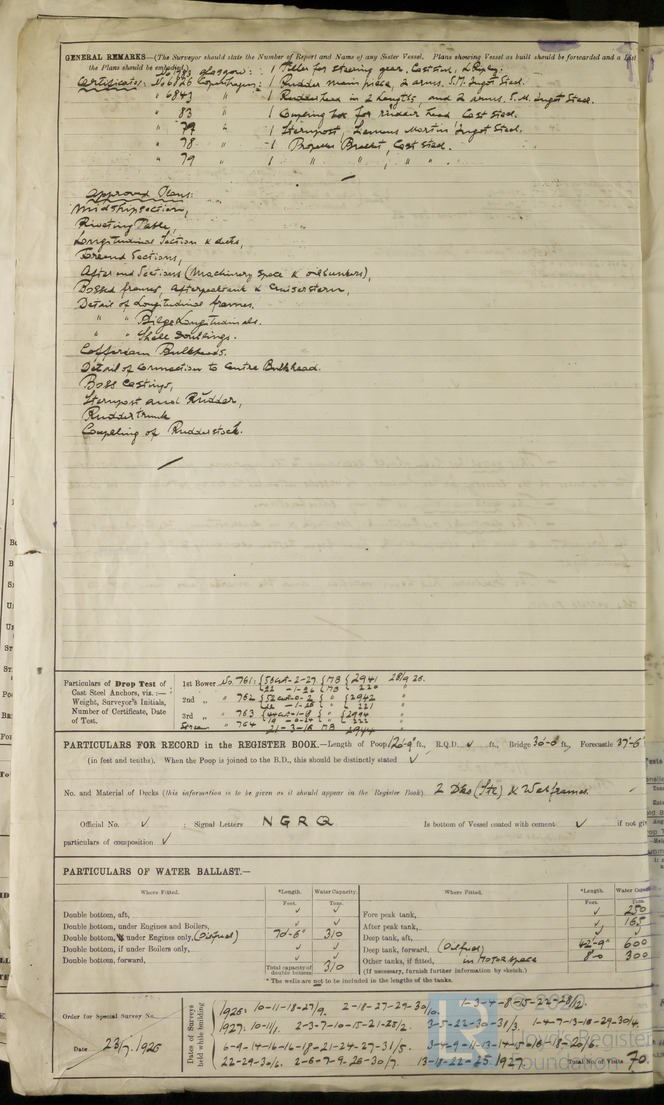 GENERAL REMARKS—(The Surveyor should state the Number of Report and Name of any Sister Vessel. Plans showing Vessel as built should be forwarded and a List
the Plans should be embodied.) Glasgow: 1 Tiller for steering gear, Cast Steel,
Certificates: No 6826 Copenhagen: 1 Rudder main piece, 2 arms. S.M. Ingot Steel.
" 6843 " 1 Rudderhead in 2 lengths, and 2 arms. S.M. Ingot Steel.
" 83 " 1 Coupling box for rudder head, Cast Steel.
" 77 " 1 Sternpost, Siemens Martin Ingot Steel.
" 78 " 1 Propeller Bracket, Cast Steel.
" 79 " 1 " " , " " .
Approved Plans:
Midship section,
Riveting Table,
Longitudinal Section & decks,
Forend Sections,
After end Sections (Machinery Space & oilbunkers),
Bossed frames, Afterpeaktank & Cruiserstern,
Detail of Longitudinal frames.
" " Bilge Longitudinals.
" " Shell Doublings.
Cofferdam Bulkheads.
Detail of Connection to Centre Bulkhead.
Boss Castings,
Sternpost and Rudder,
Rudder trunk
Coupling of Rudderstock.
Particulars of Drop Test of
Cast Steel Anchors, viz. :—
Weight, Surveyor's Initials,
Number of Certificate, Date
of Test.
1st Bower No. 761: 2941 28/9 26.
2nd " " 762 2942
3rd " " 763 2944
Stream " 764 21-3-16 MB
PARTICULARS FOR RECORD in the REGISTER BOOK.—Length of Poop 126'-9" ft., R.Q.D. ✓ ft., Bridge 36'-0" ft., Forecastle 37'-6"
(in feet and tenths). When the Poop is joined to the B.D., this should be distinctly stated ✓
No. and Material of Decks (this information is to be given as it should appear in the Register Book) 2 Dks (Stl) & Webframes.
Official No. ✓ ; Signal Letters N G R Q Is bottom of Vessel coated with cement ✓ if not gi
particulars of composition ✓
PARTICULARS OF WATER BALLAST.—
Where Fitted. *Length. Water Capacity. Where Fitted. *Length. Water Capac
Feet. Tons. Feet. Tons.
Double bottom, aft, ✓ ✓ Fore peak tank, ✓ 250
Double bottom, under Engines and Boilers, ✓ ✓ After peak tank, ✓ 165
Double bottom, if under Engines only, (Oilfuel) 70'-8" 310 Deep tank, aft, ✓ ✓
Double bottom, if under Boilers only, ✓ ✓ Deep tank, forward, (Oilfuel) 42'-9" 600
Double bottom, forward, ✓ ✓ Other tanks, if fitted, in Motor space 8-0 300
Total capacity of double bottom 310 (If necessary, furnish further information by sketch.)
* The wells are not to be included in the lengths of the tanks.
Order for Special Survey No.
Date 23/7. 1926
Dates of Surveys held while building
1926: 10-11-18-27/9. 2-18-27-29-30/10. 1-3-4-8-15-22-28/12.
1927: 10-11/1. 2-3-7-10-15-21-25/2. 3-5-22-30-31/3. 1-4-7-13-18-29-30/4.
6-9-14-16-16-18-21-24-27-31/5. 3-4-9-11-13-14-15-16-18-20/6.
22-29-30/6. 2-6-7-9-26-30/7. 13-18-22-25 1927. Total No. of Visits 70.
© 2021
Lloyd's Register
Foundation